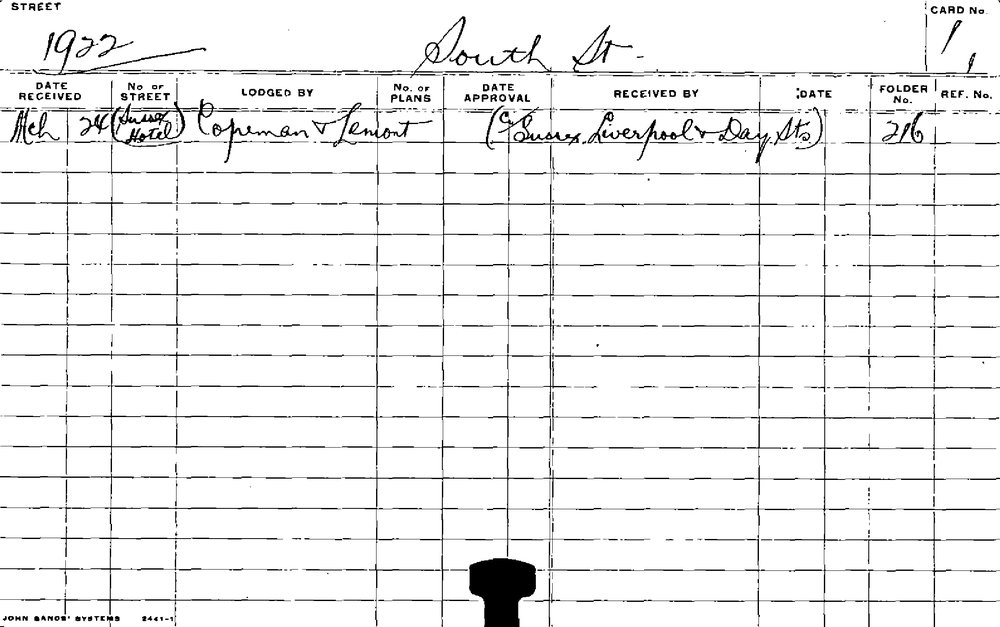 STREET
CARD No.
1922
South St
1
1
DATE RECEIVED
No OF STREET
LODGED BY
No. OF PLANS
DATE APPROVAL
RECEIVED BY
DATE
FOLDER No.
REF. No.
Mch 24 (Sussex Hotel) Copeman & Lemont (Cr Sussex, Liverpool & Day Sts) 216
JOHN SANDS' SYSTEMS 2441-1